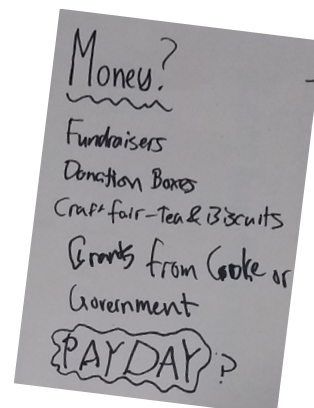 Money?
Fundraisers
Donation Boxes
Craft fair - Tea & Biscuits
Grants from Cooke or
Government
PAYDAY?